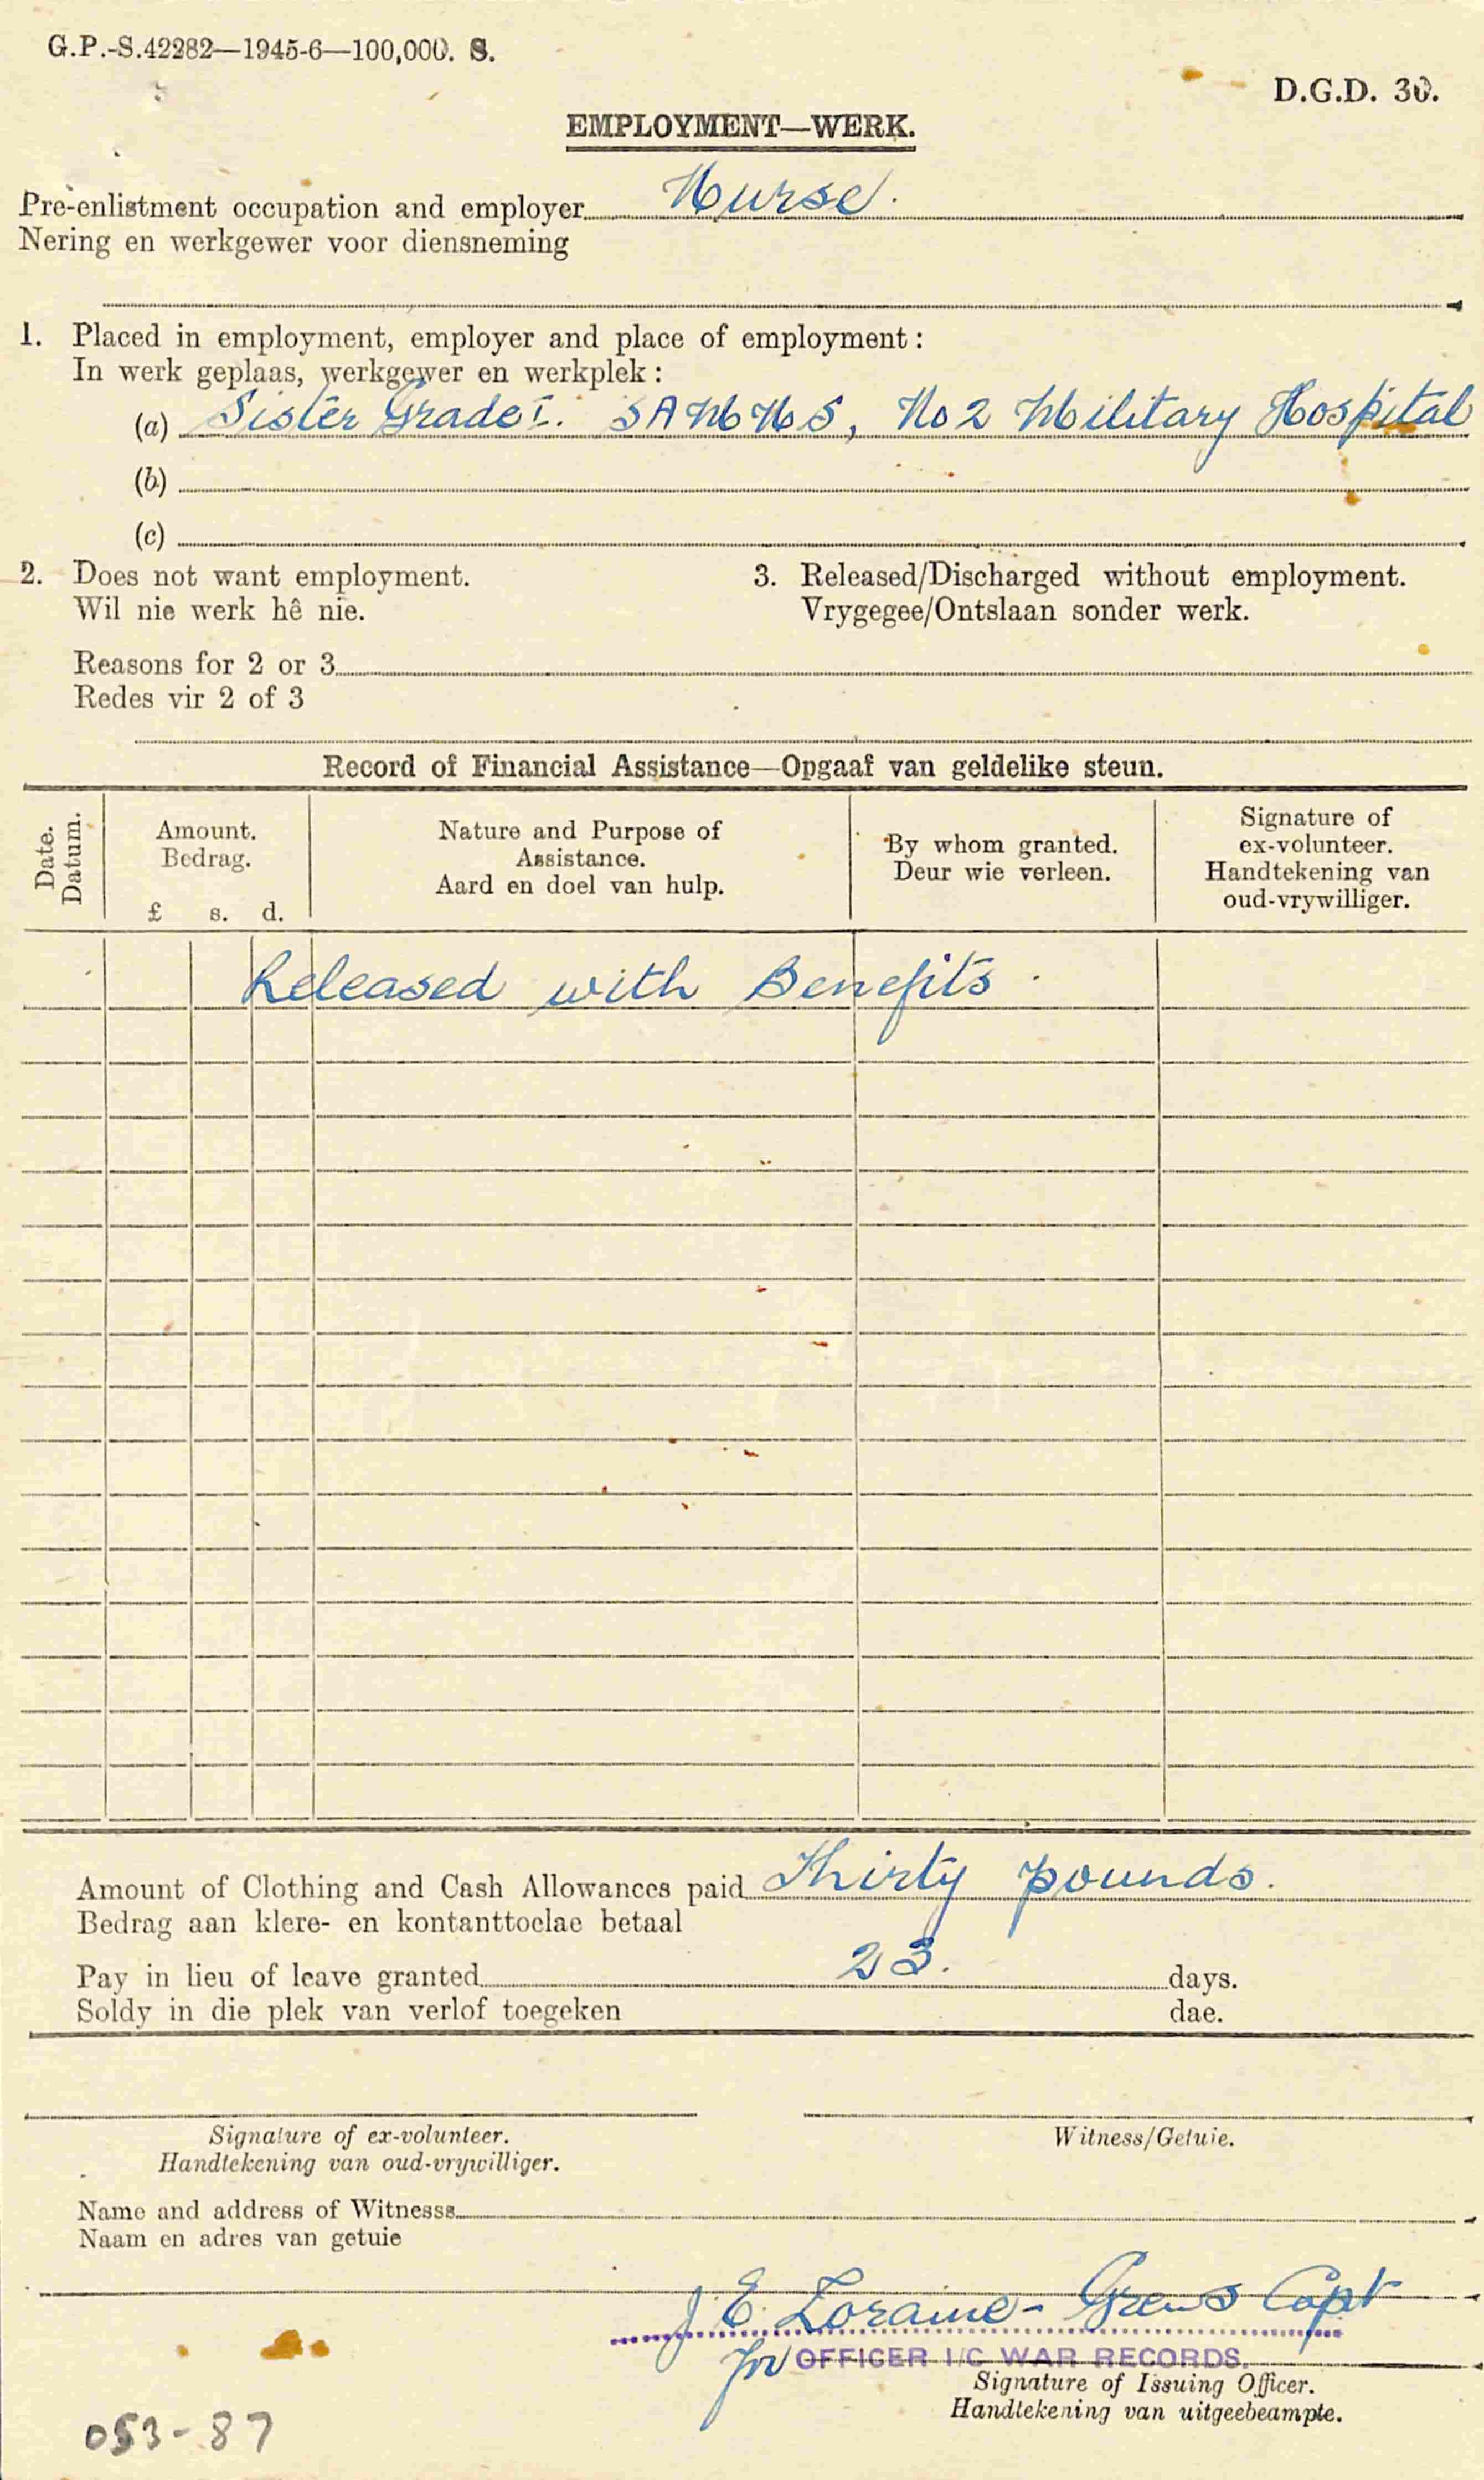 G.P.-S.42282—1945-6—100,000. S.
D.G.D. 30.
EMPLOYMENT—WERK.
Pre-enlistment occupation and employer Nurse.
Nering en werkgewer voor diensneming
1. Placed in employment, employer and place of employment:
In werk geplaas, werkgewer en werkplek:
(a) Sister Grade I. SAMNS, No 2 Military Hospital
(b)
(c)
2. Does not want employment.
Wil nie werk hê nie.
3. Released/Discharged without employment.
Vrygegee/Ontslaan sonder werk.
Reasons for 2 or 3
Redes vir 2 of 3
Record of Financial Assistance—Opgaaf van geldelike steun.
Date.
Datum.
Amount.
Bedrag.
£ s. d.
Nature and Purpose of
Assistance.
Aard en doel van hulp.
By whom granted.
Deur wie verleen.
Signature of
ex-volunteer.
Handtekening van
oud-vrywilliger.
Released with Benefits.
Amount of Clothing and Cash Allowances paid Thirty pounds.
Bedrag aan klere- en kontanttoelae betaal
Pay in lieu of leave granted 23. days.
Soldy in die plek van verlof toegeken dae.
Signature of ex-volunteer.
Handtekening van oud-vrywilliger.
Witness/Getuie.
Name and address of Witnesss
Naam en adres van getuie
J. E. Loraine- Capt
for OFFICER I/C WAR RECORDS.
Signature of Issuing Officer.
Handtekening van uitgeebeampte.
053-87